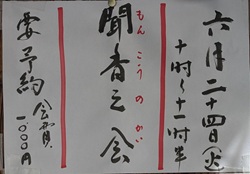 六月二十四日(火)
十時〜十一時半
聞香之会
もんこうのかい
要予約
会費
一000円